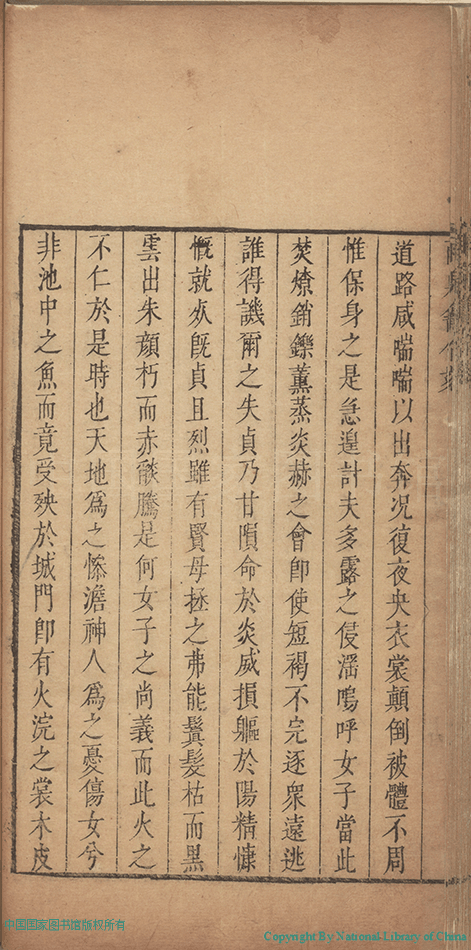 道路咸喘喘以出奔况復夜央衣裳顛倒被體不周
惟保身之是急遑計夫多露之侵滛嗚呼女子當此
焚燎銷鑠薰蒸炎赫之會卽使短褐不完逐衆遠逃
誰得譏爾之失貞乃甘隕命於炎威損軀於陽精慷
慨就焱旣貞且烈雖有賢母拯之弗能鬒髮枯而黑
雲出朱顔朽而赤燄騰是何女子之尚義而此火之
不仁於是時也天地爲之慘澹神人爲之憂傷女兮
非池中之魚而竟受殃於城門卽有火浣之裳木皮
中国国家图书馆版权所有
Copyright By National Library of China